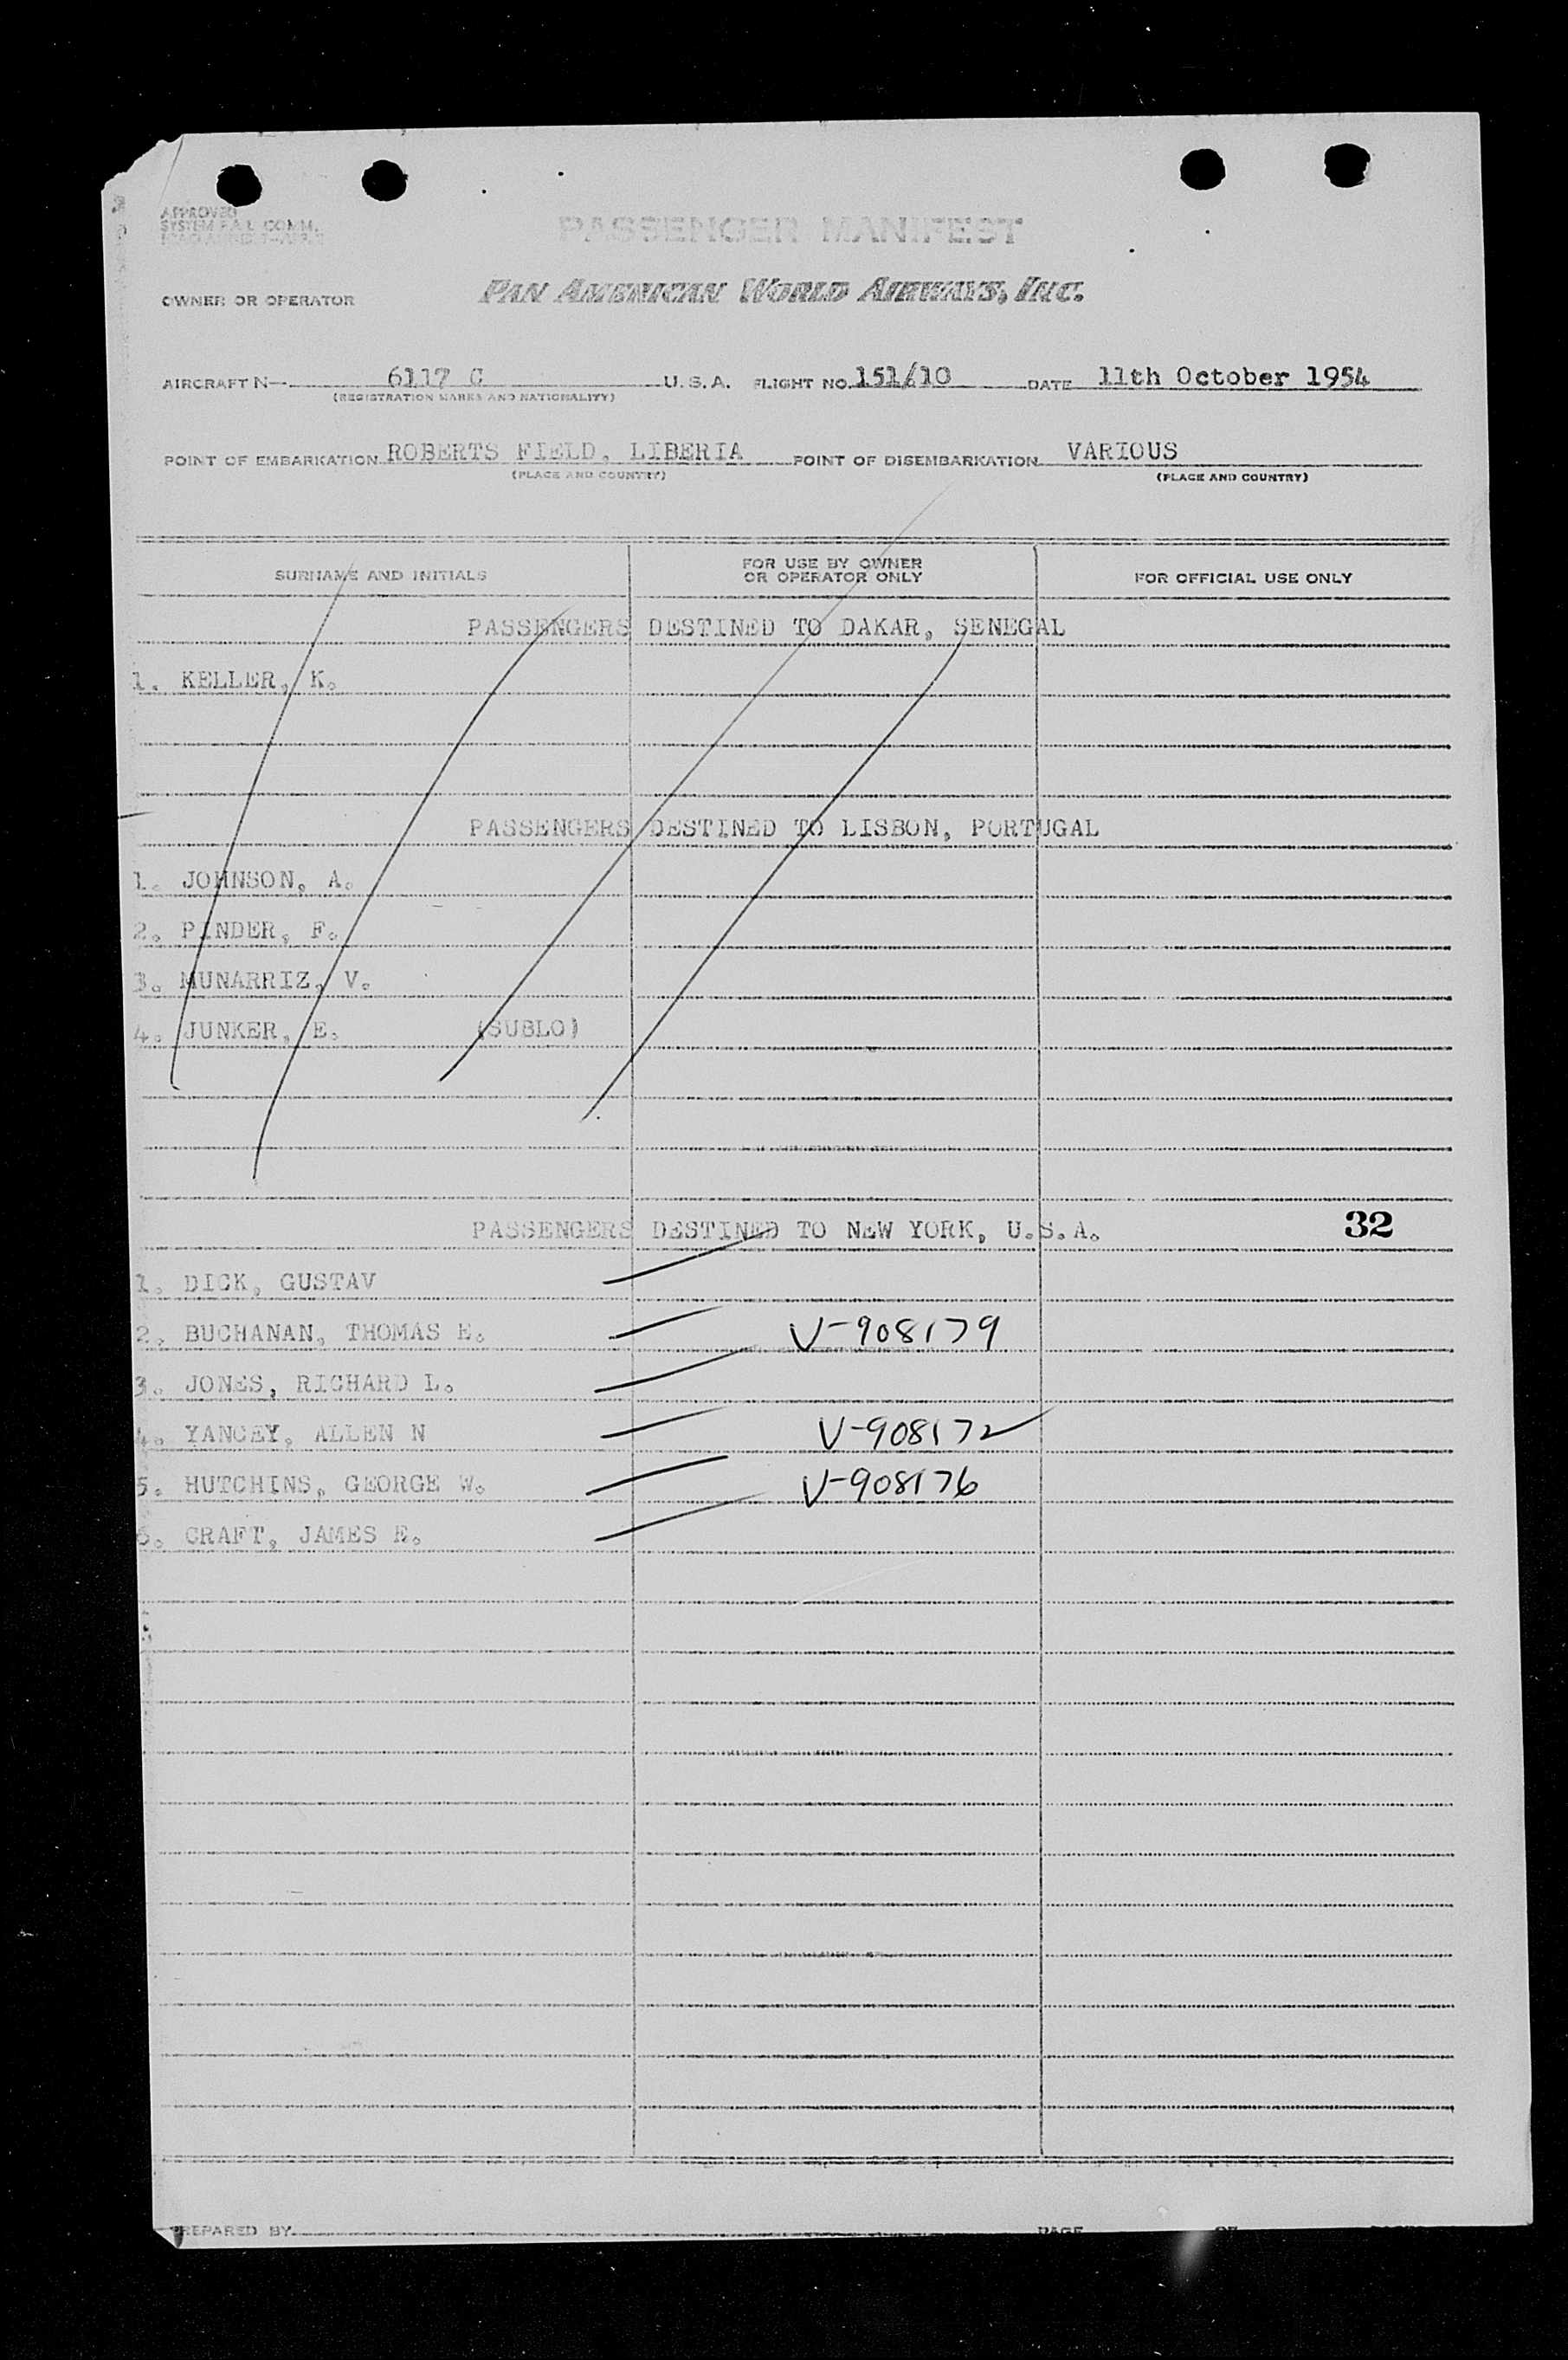 APPROVED
SYSTEM F.A.L. COMM.
PASSENGER MANIFEST
OWNER OR OPERATOR PAN AMERICAN WORLD AIRWAYS, INC.
AIRCRAFT N— 6117 C U. S. A. FLIGHT NO. 151/10 DATE 11th October 1954
(REGISTRATION MARKS AND NATIONALITY)
POINT OF EMBARKATION ROBERTS FIELD, LIBERIA POINT OF DISEMBARKATION VARIOUS
(PLACE AND COUNTRY) (PLACE AND COUNTRY)
SURNAME AND INITIALS FOR USE BY OWNER OR OPERATOR ONLY FOR OFFICIAL USE ONLY
PASSENGERS DESTINED TO DAKAR, SENEGAL
1. KELLER, K.
PASSENGERS DESTINED TO LISBON, PORTUGAL
1. JOHNSON, A.
2. PINDER, F.
3. MUNARRIZ, V.
4. JUNKER, E. (SUBLO)
PASSENGERS DESTINED TO NEW YORK, U.S.A. 32
1. DICK, GUSTAV
2. BUCHANAN, THOMAS E. V-908179
3. JONES, RICHARD L.
4. YANCEY, ALLEN N V-908172
5. HUTCHINS, GEORGE W. V-908176
6. CRAFT, JAMES E.
PREPARED BY PAGE OF